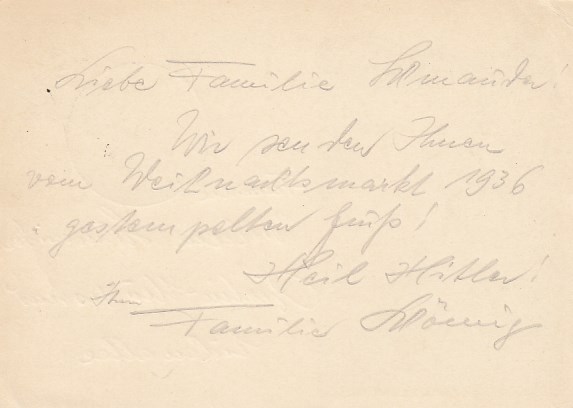 Liebe Familie
Wir senden Ihnen
vom Weihnachtsmarkt 1936
gestempelten Gruß!
Heil Hitler!
Familie